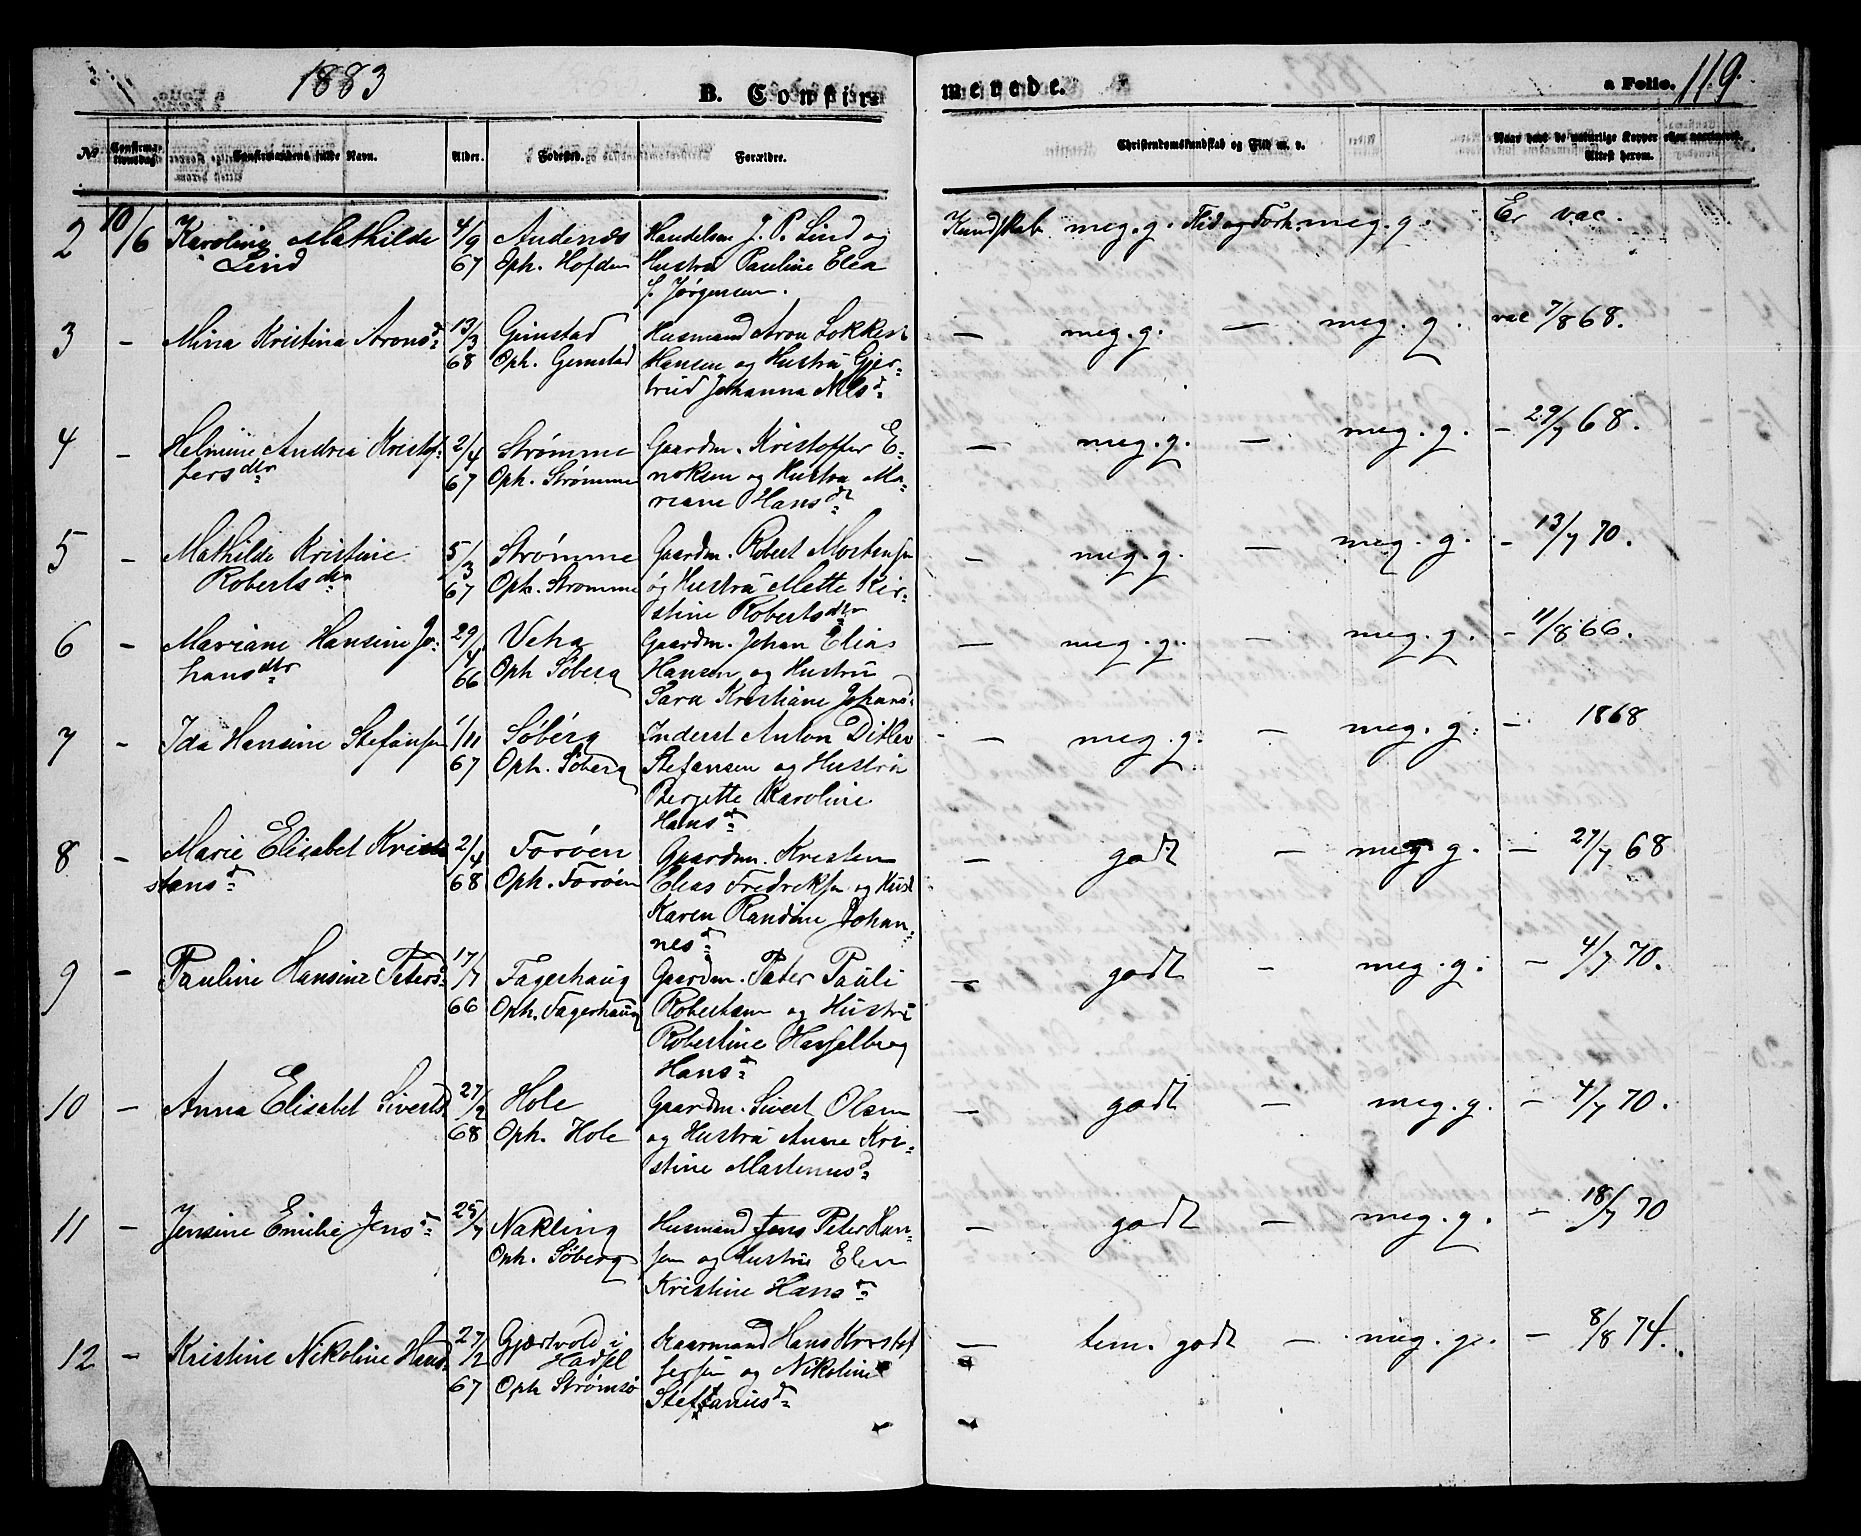 1883
B. Confir= merede.
a Folio. 119.
No Confirmationsdag. Confirmandens fulde Navn. Alder. Fødested. Forældre. Christendomskundskab og Flid m. v. Naar havt de naturlige Kopper eller vaccineret. Attest herom.
2 10/6 Karoline Mathilde 4/9 Andenæs Handelsm J. P. Lind og Kundskab meg. g. Flid og Forh. meg. g. Er vac.
Lind 67 Oph. Hofden Hustru Pauline Elea
f. Jørgensen.
3 - Mina Kristina Aronsd. 13/3 Gimstad Husmand Aron Lokkert - meg. g. - meg. g. vac 7/8 68.
68 Oph. Gimstad Hansen og Hustru Gjer-
trud Johanna Nilsd.
4 - Helmine Andrea Kristof- 2/4 Strømme Gaardm. Kristoffer E- - meg. g. - meg. g. - 29/7 68.
fersdtr 67 Oph. Strømme noksen og Hustru Ma-
riane Hansdt.
5 - Mathilde Kristine 5/3 Strømme Gaardm. Robert Mortensen - meg. g. - meg. g. - 13/7 70.
Robertsdtr 67 Oph. Strømme og Hustru Mette Kir-
stine Robertsdtr
6 - Mariane Hansine Jo- 29/4 Veha Gaardm. Johan Elias - meg. g. - meg. g. - 11/8 66.
hansdtr 66 Oph Søberg Hansen og Hustru
Sara Kristiane Johans-
7 - Ida Hansine Stefansen 1/11 Søberg Inderst Anton Ditlev - meg. g. - meg. g. - 1868
67 Oph. Søberg Stefansen og Hustru
Bergette Karoline
Hansd.
8 - Marie Elisabet Kristi 2/4 Forøen Gaardm. Kristen - godt - meg g. - 27/7 68
stansd. 68 Oph. Forøen Elias Fredriksen og Hust
Karen Randine Johan-
nesd.
9 - Pauline Hansine Peters- 17/7 Fagerhaug Gaardm. Peter Pauli - godt - meg. g. - 4/7 70.
66 Oph. Fagerhaug Robertsen og Hustru
Robertine Hasselberg
Hansd.
10 - Anna Elisabet Sivertsd 27/2 Hole Gaardm. Sivert Olsen - godt - meg. g. - 4/7 70.
68 Oph. Hole og Hustru Anne Kri-
stine Martinusd.
11 - Jensine Emilie Jensd. 25/7 Nakling Husmand Jens Peter Han- - godt - meg. g. - 18/7 70
Oph. Søberg sen og Hustru Elen
Kristine Hansd.
12 - Kristine Nikoline Hansd. 27/2 Gjærtvold i Kaarmand Hans Kristof - tem. godt - meg. g. - 8/8 74.
Hadsel fersen og Nikoline
67 Oph Strømsø Steffaniusd.